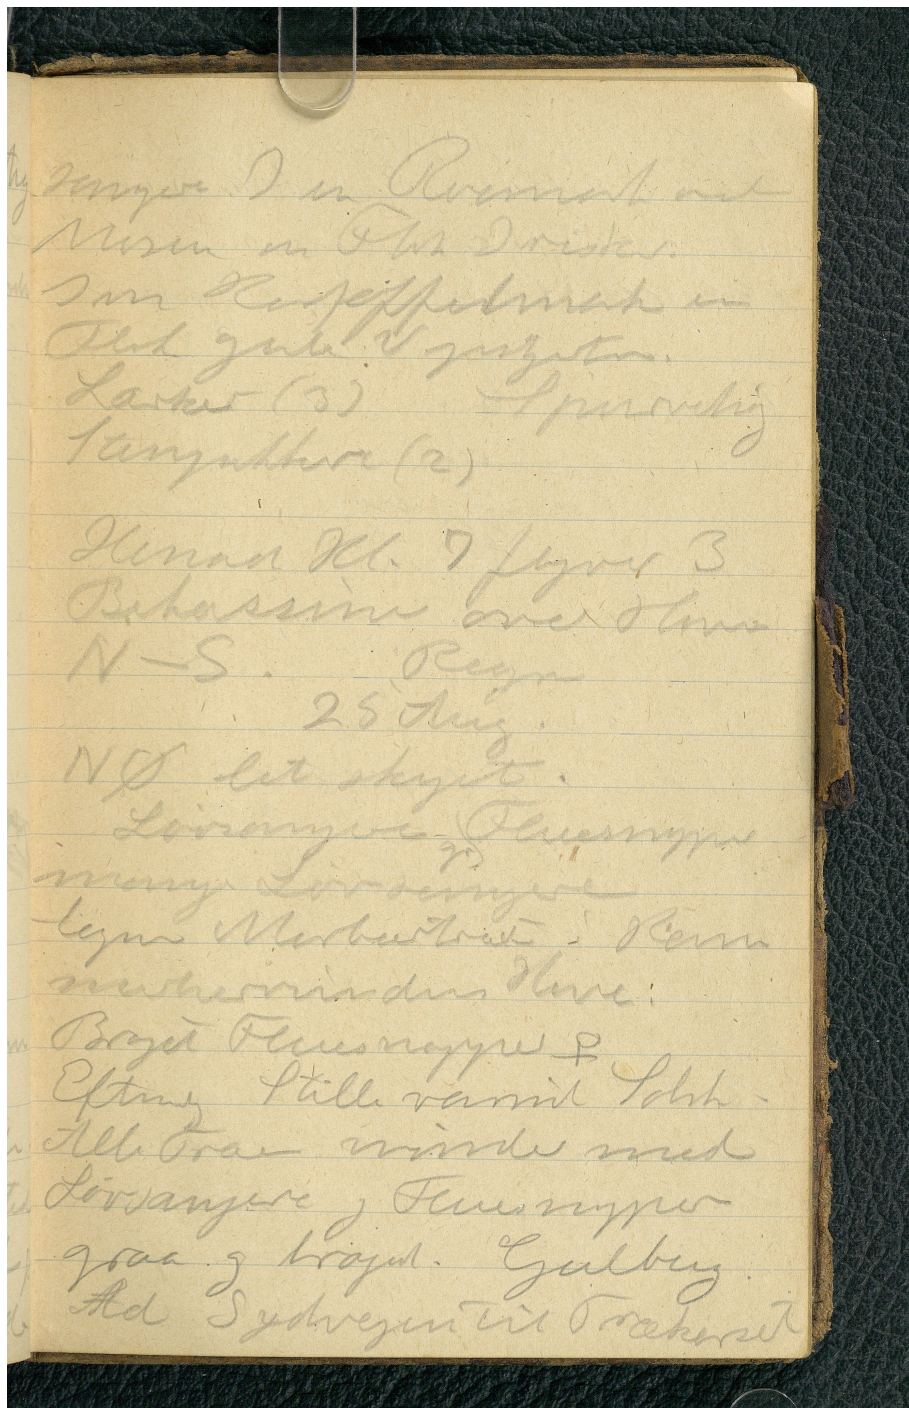 sangere I en Roemark ved
Mosen en Flok Irisker.
I en Kartoffelmark en
Flok gule Vipstjerter.
Lærker (3) Spurvehøg
Stenpikkere (2)
Henad Kl. 7 flyver 3
Bekassiner over Haven
N–S. Regn
25 Aug.
NØ let skyet.
Løvsangere og Fluesnapper
mange Løvsangere
Morbærtræet i
Have:
Broget Fluesnapper ♀
Eftmg Stille varmt Solsk.
Alle Træer vrimler med
Løvsangere og Fluesnapper
graa og broget. Gulbug.
Ad Sydvejen til Trækorset